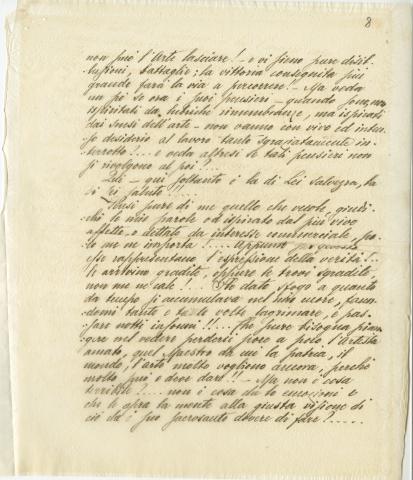 8
non può l'Arte lasciare! - e vi sieno pure disil-
lusioni, battaglie; la vittoria conseguita più
grande farà la via a percorrere! - Ma veda
un po' se ora i suoi pensieri - quando sono
ispirati da lubriche rimembranze, ma ispirati
dai sensi dell'arte - non vanno con vivo ed inten-
so desiderio al lavoro tanto sgraziatamente in-
terrotto!... e veda altresì se tali pensieri non
si rivolgono al poi!...
qui soltanto è la di Lei salvezza, la
si salute!!...
Pensi pure di me quello che vuole, giudi-
chi le mie parole od ispirate dal più vivo
affetto o dettate da interesse commerciale, po-
co me ne importa!.... Appunto
esse rappresentano l'espressione della verità!...
le arrivino gradite, oppure le trovi sgradite,
non me ne cale!... Ho dato sfogo a quanto
da tempo si accumulava nel mio cuore, facen-
domi tante e tante volte lagrimare, e pas-
sare notti insonni!!... Che pure bisogna pian-
gere nel vedere perdersi poco a poco l'Artista
amato, quel Maestro da cui la patria, il
mondo, l'arte molto vogliono ancora, perché
molto può e deve dare!! - Ma non è cosa
terribile?.... non è cosa da commuoverle e
che le apra la mente alla giusta visione di
ciò che è suo sacrosanto dovere di fare?.....